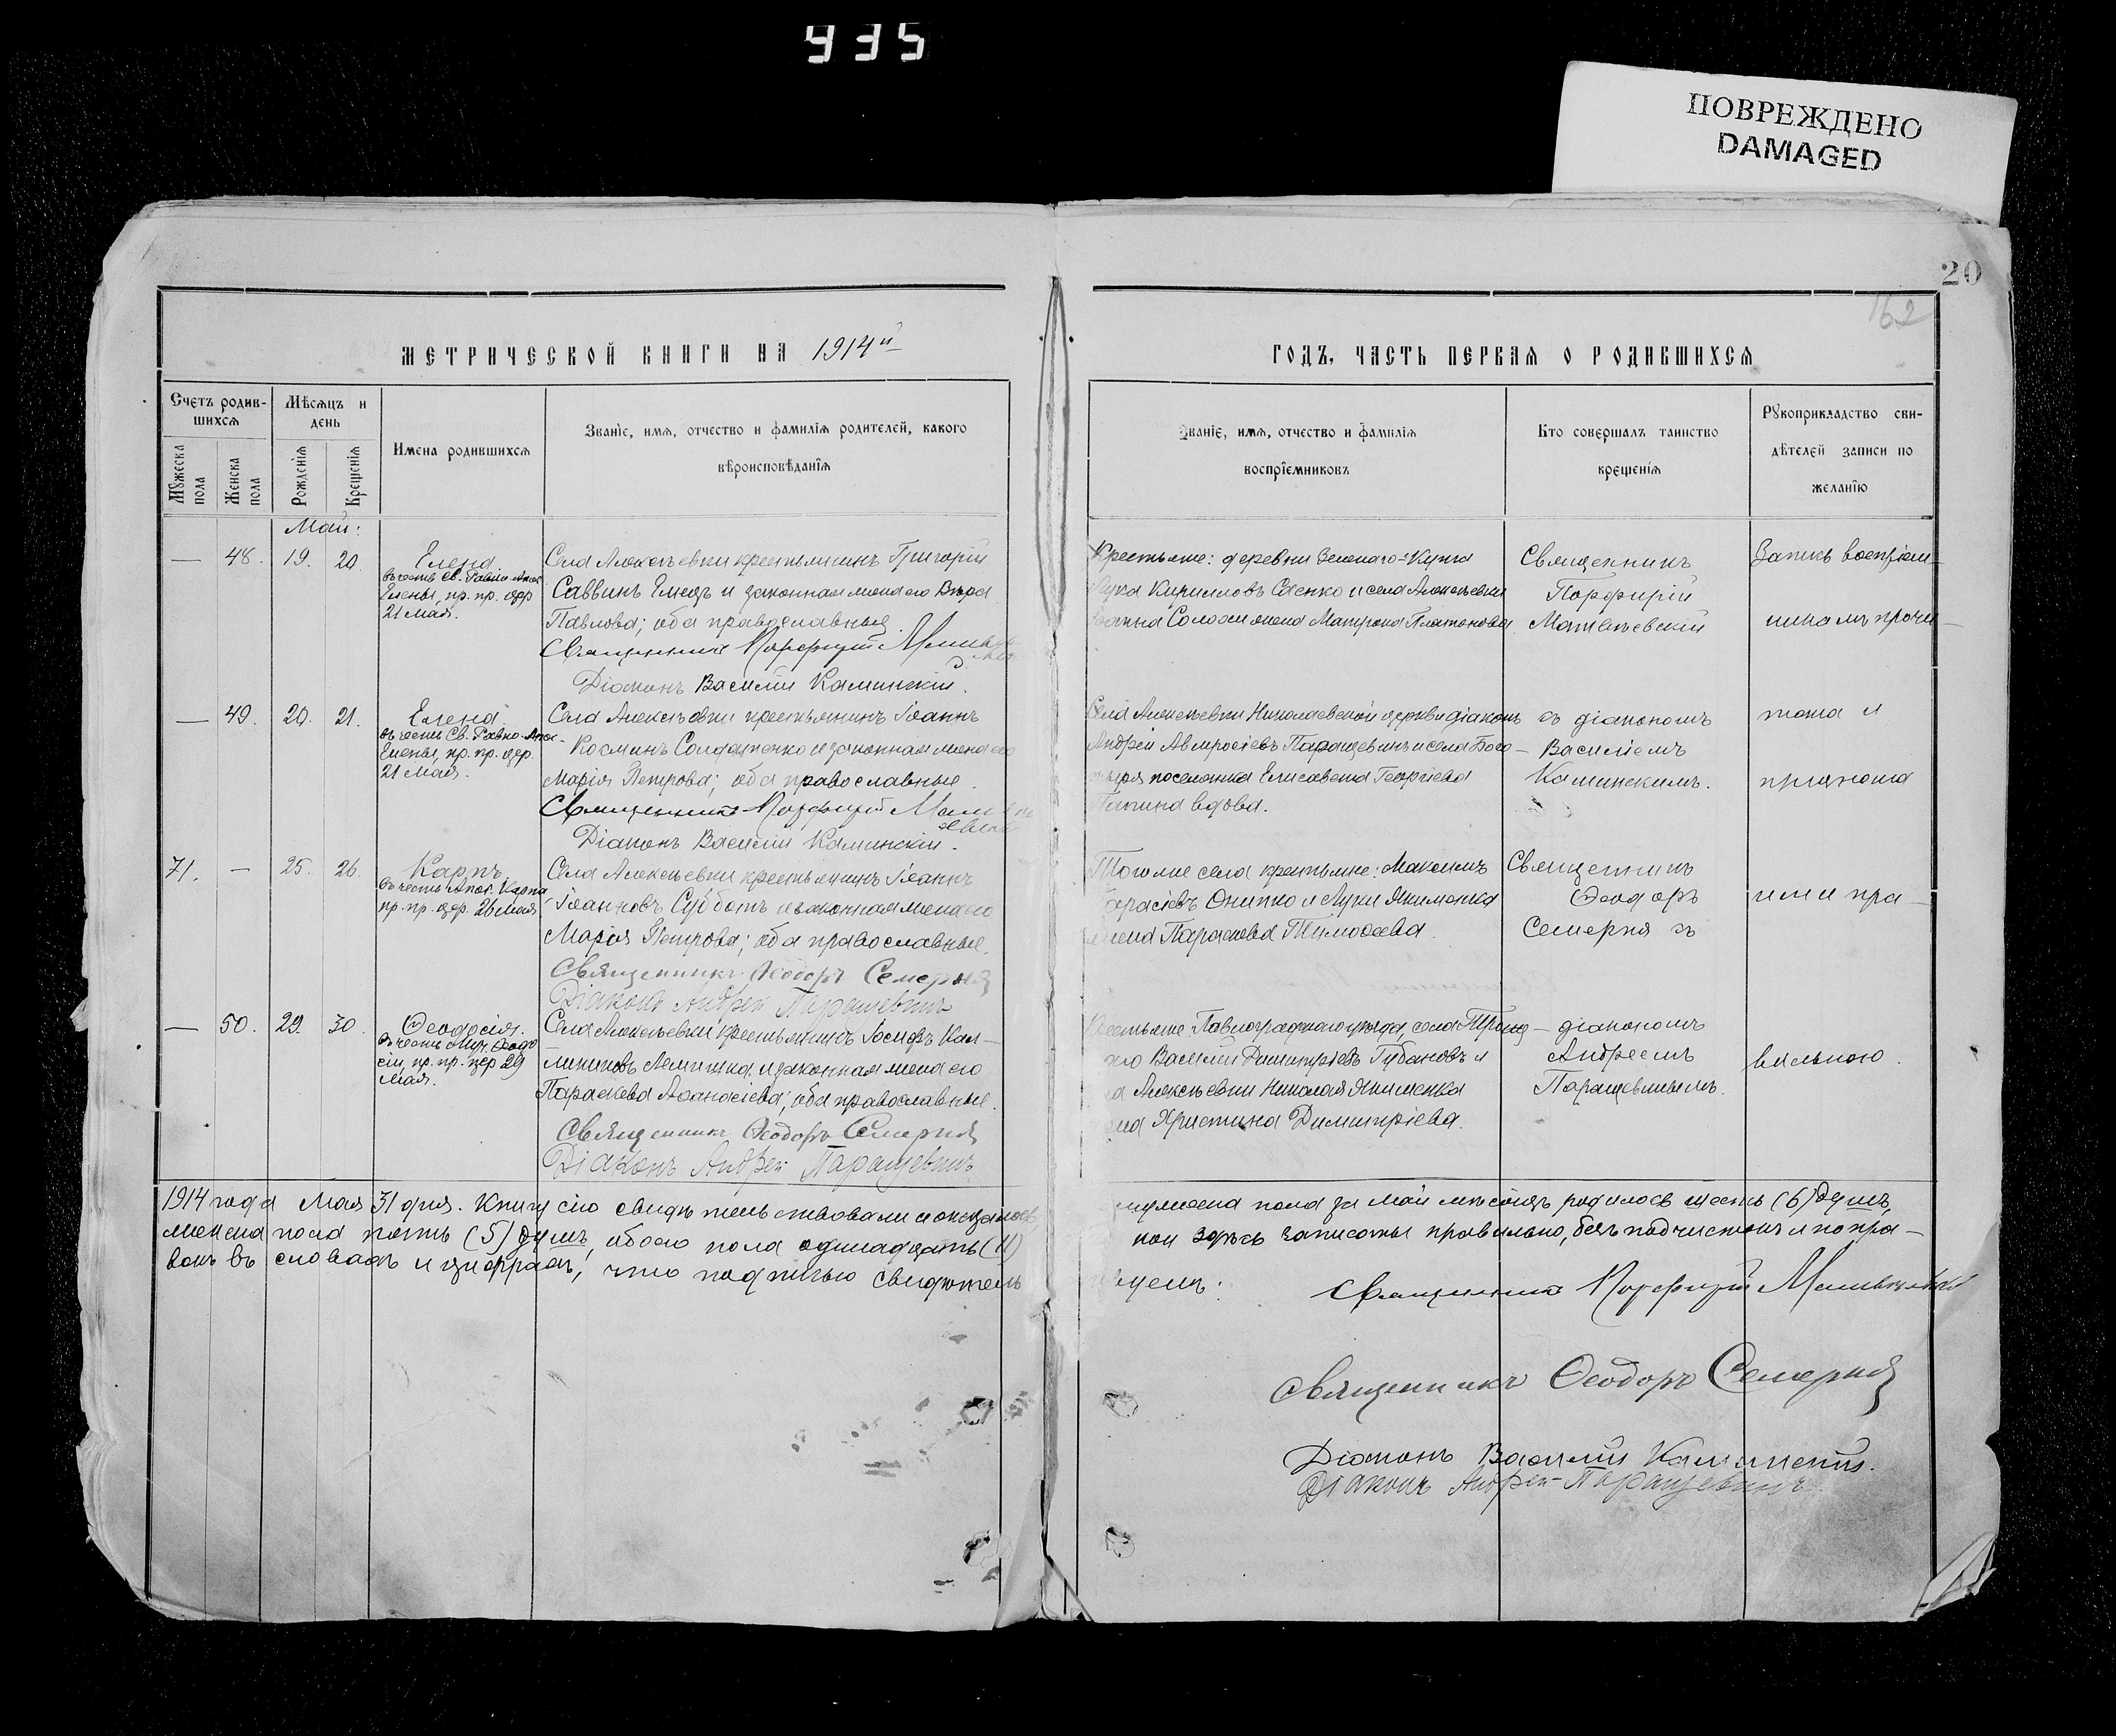 935
ПОВРЕЖДЕНО
DAMAGED
20
162
МЕТРИЧЕСКОЙ КНИГИ НА 1914й
ГОДЪ, ЧАСТЬ ПЕРВАЯ О РОДИВШИХСЯ
Счетъ родив-
шихся
Мѣсяцъ и
день
Мужеска
пола
Женска
пола
Рожденія
Крещенія
Имена родившихся
Званіе, имя, отчество и фамилія родителей, какого
вѣроисповѣданія
Званіе, имя, отчество и фамилія
воспріемниковъ
Кто совершалъ таинство
крещенія
Рукоприкладство сви-
дѣтелей записи по
желанію
Май:
— 48. 19. 20.
Елена
въ честь Св. Равно-Апос.
Елены, пр. пр. цер.
21 мая.
Села Алексѣевки крестьянинъ Григорій
Саввинъ Емецъ и законная жена его Вѣра
Павлова; оба православные.
Священникъ Порфирій
Діаконъ Василій Каминскій.
Крестьяне: деревни Зеленаго-Кута
Лука Кирилловъ Саенко и села Алексѣевки
жена Матрона Платонова.
Священникъ
Порфирій
Запись воспріем-
никамъ прочи-
— 49. 20. 21.
Елена.
въ честь Св. Равно-Апос-
Елены, пр. пр. цер.
21 мая.
Села Алексѣевки крестьянинъ Іоаннъ
Косминъ Солдатенко и законная жена его
Марія Петрова; оба православные.
Священникъ Порфирій
Діаконъ Василій Каминскій.
Села Алексѣевки Николаевской церкви діаконъ
Андрей Амвросіевъ Паращевинъ и села Бого-
поселянка Елисавета Георгіева
вдова.
съ діакономъ
Василіемъ
Каминскимъ.
тана и
признана
71. — 25. 26.
Карпъ.
въ честь Апос. Карпа,
пр. пр. цер. 26 мая.
Села Алексѣевки крестьянинъ Іоаннъ
Іоанновъ Субботъ и законная жена его
Марія Петрова; оба православные.
Священникъ Ѳеодоръ Семерня
Діаконъ Андрей Паращевинъ
Тогоже села крестьяне: Максимъ
Тарасіевъ Онипко и Луки Якименка
жена Параскева Тимоѳеева.
Священникъ
Ѳеодоръ
Семерня съ
ими пра-
— 50. 29. 30.
Ѳеодосія.
въ честь Муч. Ѳеодо
сіи, пр. пр. цер. 29
мая.
Села Алексѣевки крестьянинъ Іосифъ Кал-
линиковъ и законная жена его
Параскева Аѳанасіева; оба православные.
Священникъ Ѳеодоръ Семерня
Діаконъ Андрей Паращевинъ
Крестьяне: Павлоградскаго уѣзда, села Троиц-
каго Василій Димитріевъ Губановъ и
Алексѣевки Николая Якименка
жена Христина Димитріева.
діакономъ
Андреемъ
Паращевинымъ.
вильною.
1914 года Мая 31 дня. Книгу сію свидѣтельствовали и оказалось
мужеска пола за май мѣсяцъ родилось шесть (6) душъ,
женска пола пять (5) душъ, обоего пола одинадцать (11)
кои здѣсь записаны правильно, безъ подчистокъ и попра-
вокъ въ словахъ и цифрахъ, что подписью свидѣтель
Священникъ Порфирій
Священникъ Ѳеодоръ Семерня
Діаконъ Василій Каминскій.
Діаконъ Андрей Паращевинъ